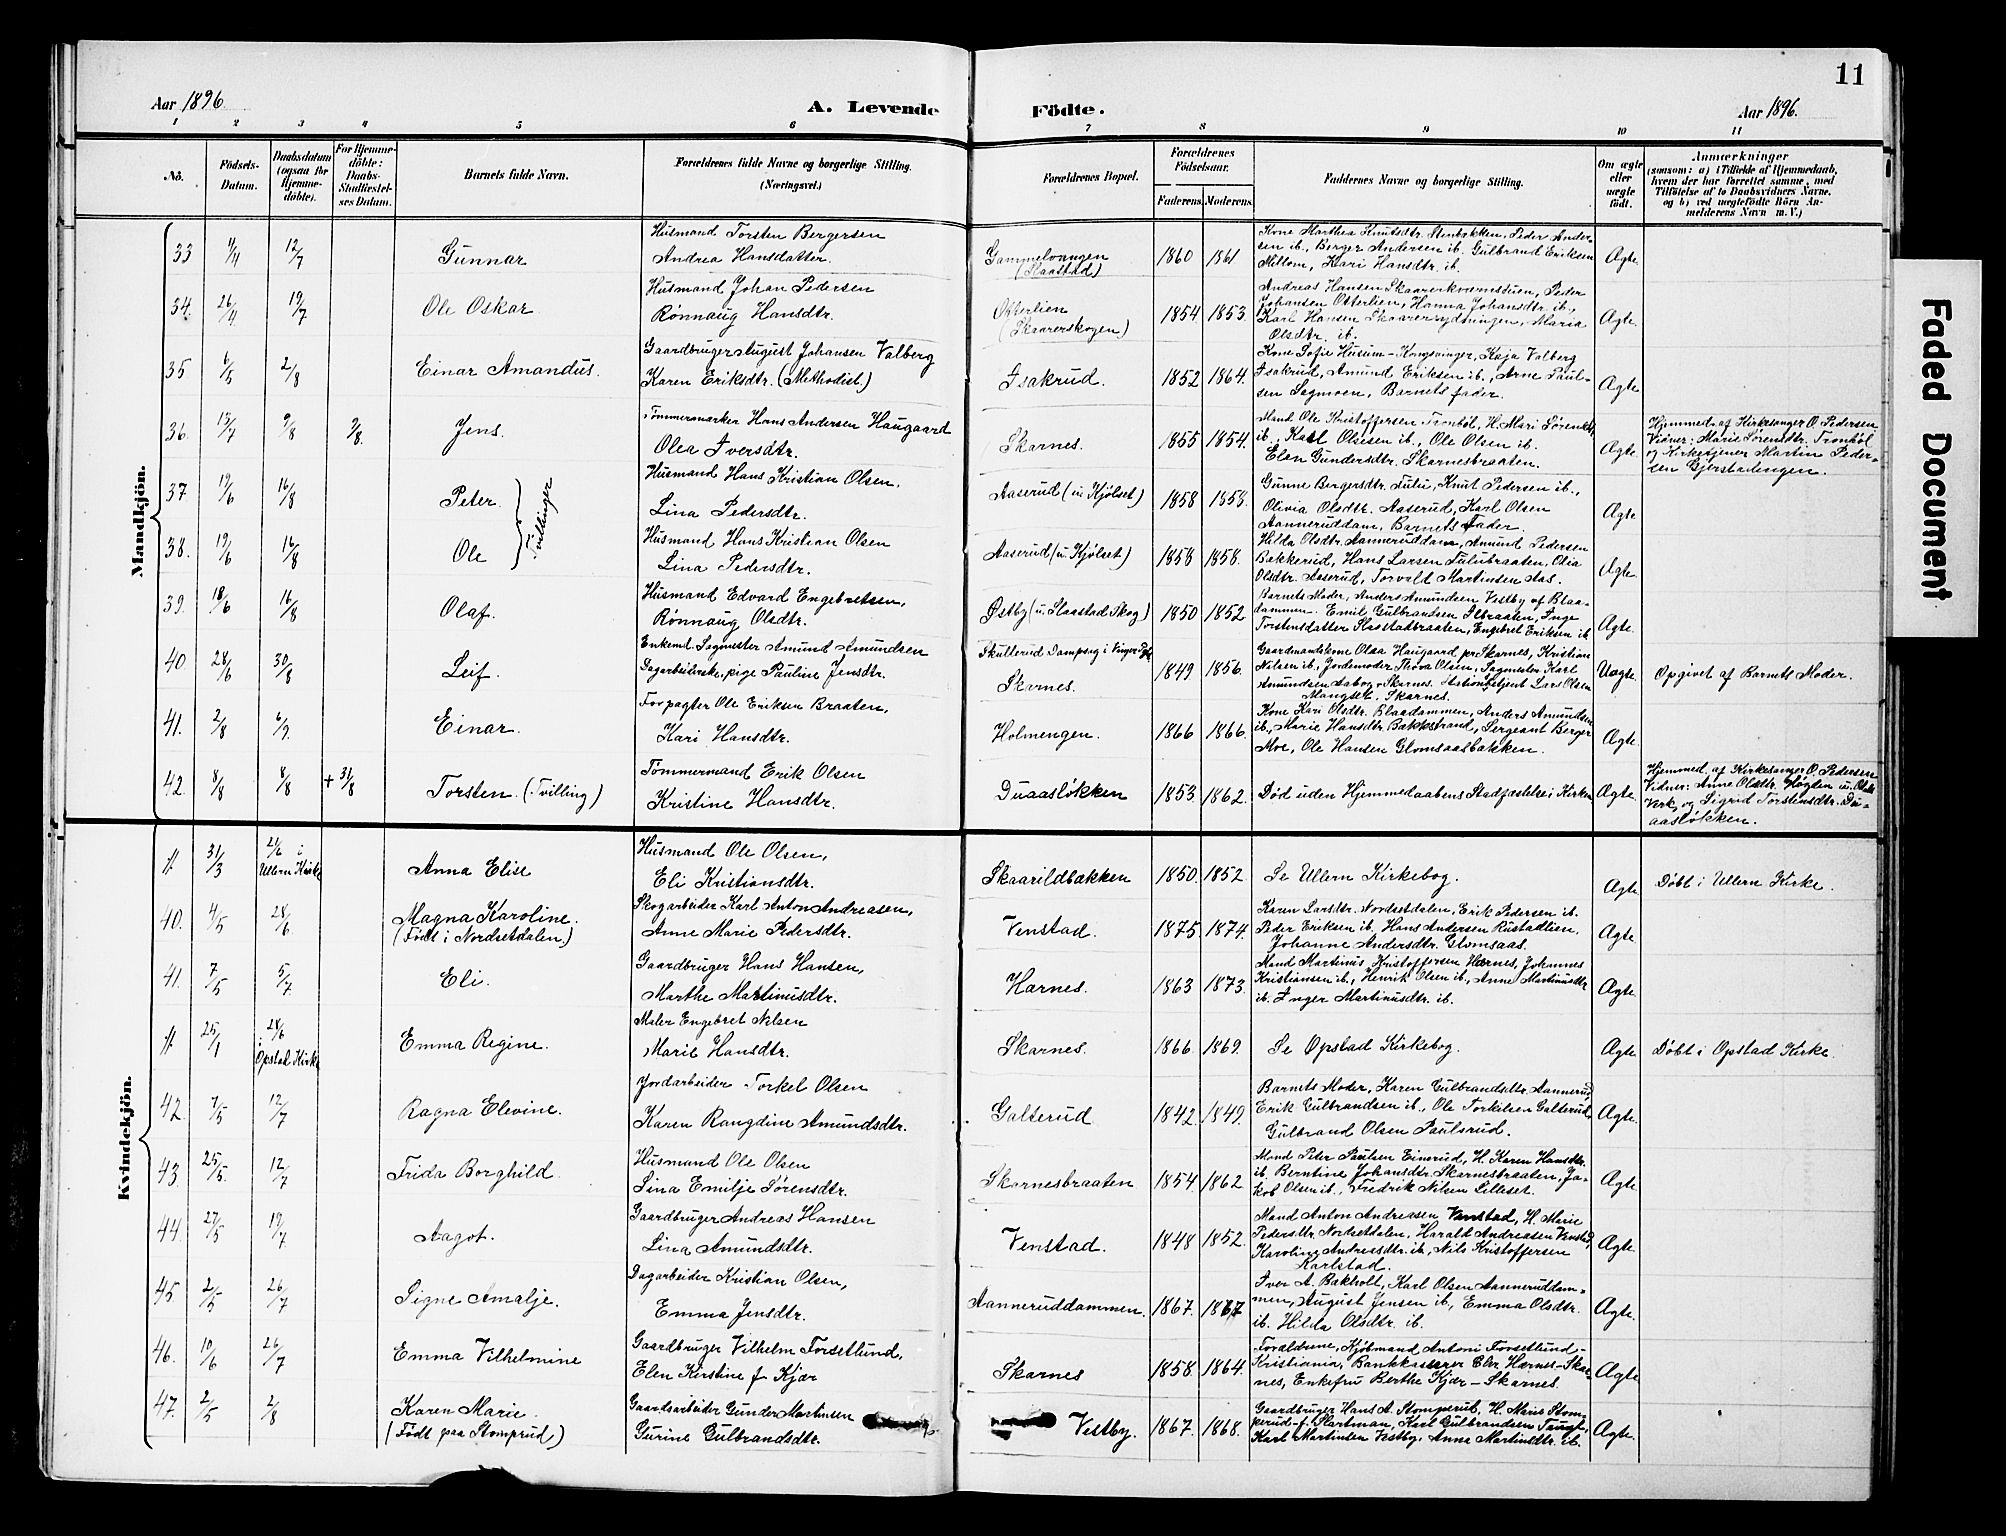 11
Aar 1896.
A. Levende Födte.
Aar 1896.
1 2 3 4 5 6 7 8 9 10 11
Nô.
Födsels-Datum.
Daabsdatum (ogsaa for Hjemme-döbte).
For Hjemme-döbte: Daabs-Stadfæstel-ses Datum.
Barnets fulde Navn.
Forældrenes fulde Navne og borgerlige Stilling. (Næringsvei.)
Forældrenes Bopæl.
Forældrenes Födselsaar.
Faderens. Moderens.
Faddernes Navne og borgerlige Stilling.
Om ægte eller uægte födt.
Anmærkninger
(saasom: a) i Tilfælde af Hjemmedaab, hvem der har forrettet samme, med Tilföielse af to Daabsvidners Navne, og b) ved uægtefödte Börn Anmelderens Navn m. V.)
Mandkjön.
33 4/4 12/7 Gunnar
Husmand Torsten Bergersen
Andrea Hansdatter.
Gammelvangen (Slaastad)
1860 1861
Kone Marthea Knutsdtr. Stenbækken, Peder Ander-
sen ib., Berger Andersen ib. Gulbrand Eriksen
Millom, Kari Hansdtr. ib.
Ægte.
34. 26/4 19/7 Ole Oskar
Husmand Johan Pedersen
Rønnaug Hansdtr.
Otterlien (Skaarerskogen)
1854. 1853.
Andreas Hansen Skaarerkværnstuen, Peder
Johansen Otterlien, Hanna Johansdtr. ib.,
Karl Hansen Skaarerrydningen, Maria
Olsdtr. ib.
Ægte.
35 6/5 2/8 Einar Amandus.
Gaardbruger August Johansen Valberg
Karen Eriksdtr. (Methodist.)
Isakrud.
1852 1864.
Kone Sofie Husum-Kongsvinger, Kaja Valberg
Isakrud, Amund Eriksen ib., Arne Paul-
sen Sagmoen, Barnets fader.
Ægte
36. 13/7 9/8 9/8. Jens.
Tømmermærker Hans Andersen Haugaard
Olea Iversdtr.
Skarnes.
1855 1854.
Mand Ole Kristoffersen Tronbøl, H. Mari Sørensdtr
ib., Karl Olsesen ib., Ole Olsen ib.
Elen Gundersdtr. Skarnesbraaten.
Ægte
Hjemmed. af Kirkesanger O. Pedersen
Vidner: Marie Sørensdtr. Tronbøl
og Kirketjener Martin Peder-
sen Gjerstadengen.
37 19/6 16/8 Peter.
Tvillinger
Husmand Hans Kristian Olsen.
Lina Pedersdtr.
Aaserud (u. Kjølset)
1858 1858.
Gunne Bergersdtr. Lulu, Knut Pedersen ib.,
Olivia Olsdtr. Aaserud, Karl Olsen
Aanneruddam, Barnets Fader.
Ægte
38. 19/6 16/8 Ole
Husmand Hans Kristian Olsen
Lina Pedersdtr.
Aaserud (u. Kjølset)
1858 1858.
Hilda Olsdtr. Aanneruddam, Amund Pedersen
Bakkerud, Hans Larsen Lulubraaten, Olia
Olsdtr. Aaserud, Torvald Martinsen Aas.
Ægte
39. 18/6 16/8 Olaf.
Husmand Edvard Engebretsen,
Rønnaug Olsdtr.
Østby (u. Slaastad Skog)
1850 1852
Barnets Moder, Anders Amundsen Vestby af Blaa-
dammen. Emil Gulbrandsen Ilbraaten, Inge
Torstensdatter Slaastadbraaten, Engebret Eriksen ib
Ægte.
40 28/6 30/8 Leif.
Enkemd. Sagmester Amund Amundsen
Dagarbeiderske, pige Pauline Jensdtr.
Skullerud Dampsag i Vinger Pgd
Skarnes.
1849 1856.
Gaardmandskone Olea Haugaard pr Skarnes, Kristian
Nilsen ib., Jordemoder Thova Olsen, Sagmester Karl
Amundsen Aabog-Skarnes. Stationsbetjent Lars Olsen
Mangset. Skarnes.
Uægte
Opgivet af Barnets Moder.
41. 2/8 6/9. Einar.
Forpagter Ole Eriksen Braaten,
Kari Hansdtr.
Holmengen.
1866 1866.
Kone Kari Olsdtr. Blaadammen, Anders Amundsen
ib., Marie Hansdtr. Bakkstrand, Sergeant Berger
Moe, Ole Hansen Glomsaasbakken.
Ægte.
42. 8/8 8/8 + 31/8 Torsten. (Tvilling)
Tømmermand Erik Olsen
Kristine Hansdtr.
Duaasløkken
1853. 1862.
Død uden Hjemmedaabens Stadfæstelse i Kirken
Ægte.
Hjemmed. af Kirkesanger O. Pedersen
Vidner: Anne Olsdtr. Høgden u.
Verk, og Sigrid Torstensdtr. Du-
aasløkken.
Kvindekjön.
31/3 21/6 i Ullern Kirke Anna Elise
Husmand Ole Olsen,
Eli Kristiansdtr.
Skaarildbakken
1850. 1852
Se Ullern Kirkebog.
Ægte
Døbt i Ullern Kirke.
40. 4/5 28/6 Magna Karoline.
(Født i Nordsetdalen.)
Skogarbeider Karl Anton Andreasen,
Anne Marie Pedersdtr.
Venstad.
1875. 1874.
Karen Larsdtr. Nordsetdalen, Erik Pedersen ib.
Peder Eriksen ib. Hans Andersen Rustadlien.
Johanne Andersdtr. Glomsaas.
Ægte.
41. 7/5 5/7. Eli.
Gaardbruger Hans Hansen,
Marthe Martinusdtr.
Harnes.
1863 1873.
Mand Martinus Kristoffersen Harnes, Johannes
Kristiansen ib., Henrik Olsen ib., Anne Martinusdtr
ib. Inger Martinusdtr. ib.
Ægte
25/1 28/6 i Opstad Kirke Emma Regine.
Maler Engebret Nilsen
Marie Hansdtr.
Skarnes.
1866. 1869.
Se Opstad Kirkebog.
Ægte
Døbt i Opstad Kirke.
42. 7/5 12/7 Ragna Elevine.
Jordarbeider Torkel Olsen
Karen Rangdine Amundsdtr.
Galterud
1842. 1849.
Barnets Moder, Karen Gulbrandsdtr. Aannerud
Erik Gulbrandsen ib., Ole Torkilsen Galterud,
Gulbrand Olsen Paulsrud.
Ægte.
43. 25/5. 12/7 Frida Borghild.
Husmand Ole Olsen
Lina Emilje Sørensdtr.
Skarnesbraaten
1854. 1862
Mand Peter Paulsen Einerud, H. Karen Hansdtr.
ib. Berntine Johansdtr. Skarnesbraaten, Ja-
kob Olsen ib., Fredrik Nilsen Lilleset.
Ægte
44. 27/5 19/7 Aagot.
Gaardbruger Andreas Hansen
Lina Amundsdtr.
Venstad.
1848 1852.
Mand Anton Andreasen Venstad, H. Marie
Pedersdtr. Nordsetdalen, Harald Andreasen Venstad,
Karoline Andreasdtr. ib., Nils Kristoffersen
Karlstad.
Ægte
45 2/5 26/7 Signe Amalje.
Dagarbeider Kristian Olsen,
Emma Jensdtr.
Aanneruddammen.
1867. 1867
Iver A. Bækholt, Karl Olsen Aanneruddam-
men, August Jensen ib., Emma Olsdtr.
ib. Hilda Olsdtr. ib.
Ægte.
46. 10/6 26/7 Emma Vilhelmine
Gaardbruger Vilhelm Forsetlund,
Elen Kirstine f. Kjær
Skarnes
1858. 1864.
Forældrene, Kjøbmand Antoni Forsetlund-
Kristiania, Bankkasserer Elex. Harnes-Skar-
nes, Enkefru Berthe Kjær-Skarnes.
Ægte
47. 2/5 2/8 Karen Marie.
(Født paa Stomprud)
Gaardsarbeider Gunder Martinsen
Gurine Gulbrandsdtr.
Vestby.
1867. 1868.
Gaardbruger Hans A. Stomperud, H. Marie Stom-
perud f. Slartman, Karl Gulbrandsen
Karl Martinsen Vestby, Anna Martinsdtr. ib.
Ægte.
Faded Document